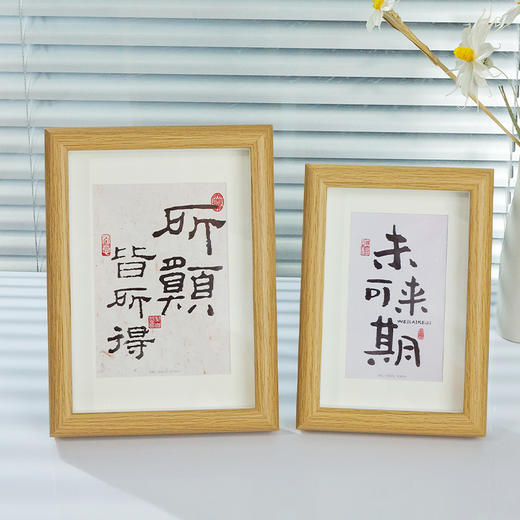 所願
皆所得
未来
可期
WEILAIKEQI